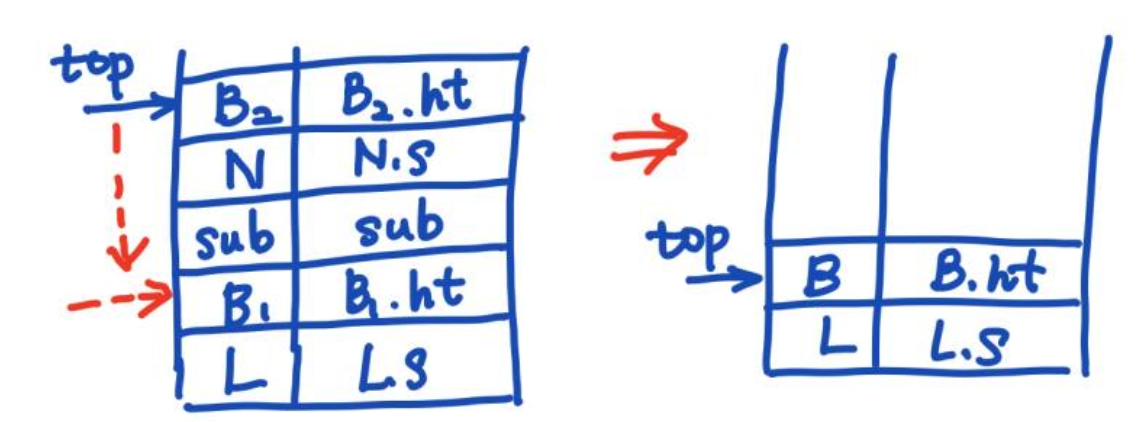 top
B₂ B₂.ht
N N.S
sub sub
B₁ B₁.ht
L L.S
top
B B.ht
L L.S